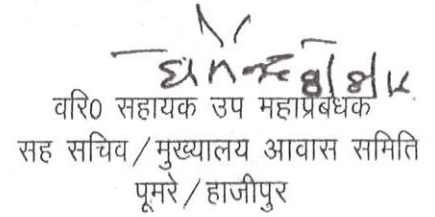 वरि0 सहायक उप महाप्रबंधक
सह सचिव/मुख्यालय आवास समिति
पूमरे/हाजीपुर